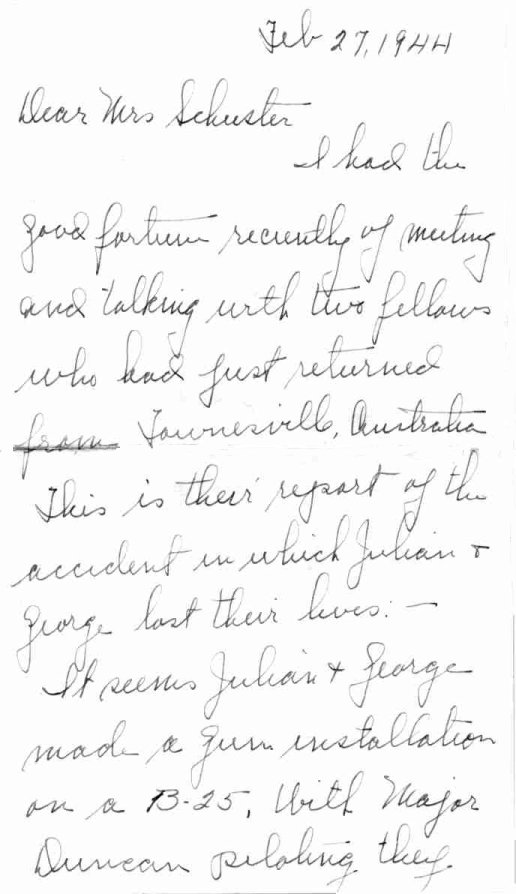 Feb 27, 1944
Dear Mrs Schuster
I had the
good fortune recently of meeting
and talking with two fellows
who had just returned
from Townesville, Australia
This is their report of the
accident in which Julian +
George lost their lives: —
It seems Julian + George
made a gun installation
on a B-25. With Major
Duncan piloting they